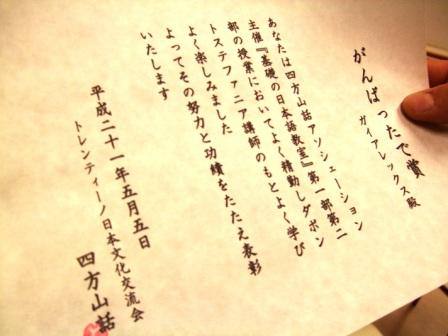 がんばったで賞
ガイアレックス殿
あなたは四方山話アソシエーション
主催『基礎の日本語教室』第一部第二
部の授業においてよく精勤しダポン
トステファニア講師のもとよく学び
よく楽しみました
よってその努力と功績をたたえ表彰
いたします
平成二十一年五月五日
トレンティーノ日本文化交流会
四方山話